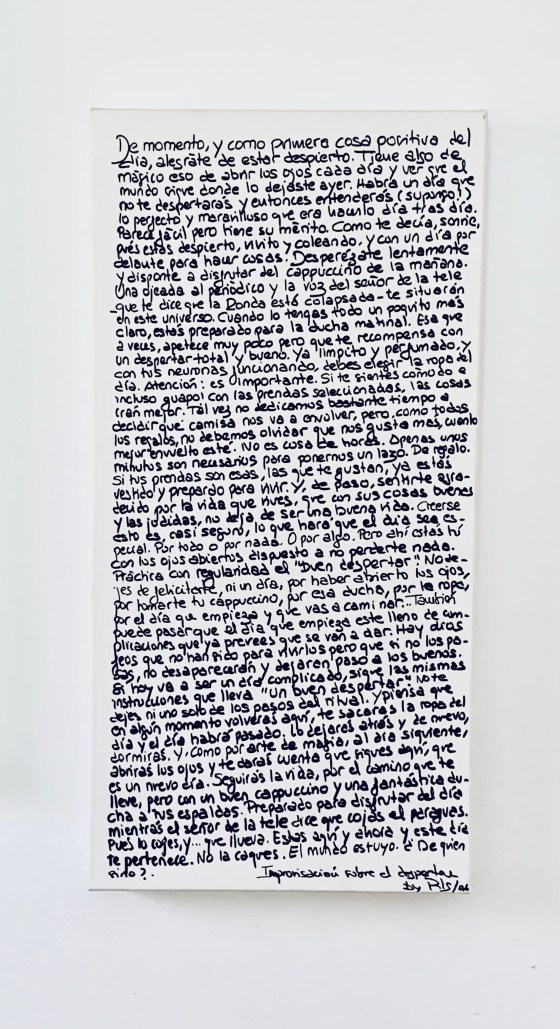 De momento, y como primera cosa positiva del
día, alegráte de estar despierto. Tiene algo de
mágico eso de abrir los ojos cada día y ver que el
mundo sigue donde lo dejaste ayer. Habrá un día que
no te despertarás y entonces entenderás (supongo!)
lo perfecto y maravilloso que era hacerlo día tras día.
Parece fácil pero tiene su mérito. Como te decía, sonríe,
pues estás despierto, vivito y coleando, y con un día por
delante para hacer cosas. Desperézate lentamente
y disponte a disfrutar del cappuccino de la mañana.
Una ojeada al periódico y la voz del señor de la tele
-que te dice que la Ronda está colapsada- te situarán
en este universo. Cuando lo tengas todo un poquito más
claro, estás preparado para la ducha matinal. Esa que
a veces, apetece muy poco pero que te recompensa con
un despertar total y bueno. Ya limpito y perfumado, y
con tus neuronas funcionando, debes elegir la ropa del
día. Atención: es importante. Si te sientes cómodo e
incluso guapo con las prendas seleccionadas, las cosas
irán mejor. Tal vez no dedicamos bastante tiempo a
decidir qué camisa nos va a envolver, pero, como todos
los regalos, no debemos olvidar que nos gusta más, cuanto
mejor envuelto esté. No es cosa de horas. Apenas unos
minutos son necesarios para ponernos un lazo. De regalo.
Si tus prendas son esas, las que te gustan, ya estás
vestido y preparado para vivir. Y, de paso, sentirte agra-
decido por la vida que vives, que con sus cosas buenas
y las jodidas, no deja de ser una buena vida. Creerse
esto es, casi seguro, lo que hará que el día sea es-
pecial. Por todo o por nada. O por algo. Pero ahí estás tú
con los ojos abiertos dispuesto a no perderte nada.
Práctica con regularidad el "buen despertar". No te-
jes de felicitarte, ni un día, por haber abierto los ojos,
por tomarte tu cappuccino, por esa ducha, por la ropa,
por el día que empieza y que vas a caminar... También
puede pasar que el día que empieza esté lleno de com-
plicaciones que ya prevees que se van a dar. Hay días
feos que no han sido para vivirlos pero que si no los pa-
sas, no desaparecerán y dejarán paso a los buenos.
Si hoy va a ser un día complicado, sigue las mismas
instrucciones que lleva "un buen despertar". No te
dejes ni uno solo de los pasos del ritual. Y piensa que
en algún momento volverás aquí, te sacarás la ropa del
día y el día habrá pasado. Lo dejarás atrás y de nuevo,
dormirás. Y, como por arte de magia, al día siguiente,
abrirás los ojos y te darás cuenta que sigues aquí, que
es un nuevo día. Seguirás la vida, por el camino que te
lleve, pero con un buen cappuccino y una fantástica du-
cha a tus espaldas. Preparado para disfrutar del día
mientras el señor de la tele dice que cojas el paraguas.
Pues lo coges, y... que llueva. Estás aquí y ahora y este día
te pertenece. No la cagues. El mundo es tuyo. ¿De quién
sino?.
Improvisación sobre el despertar
by